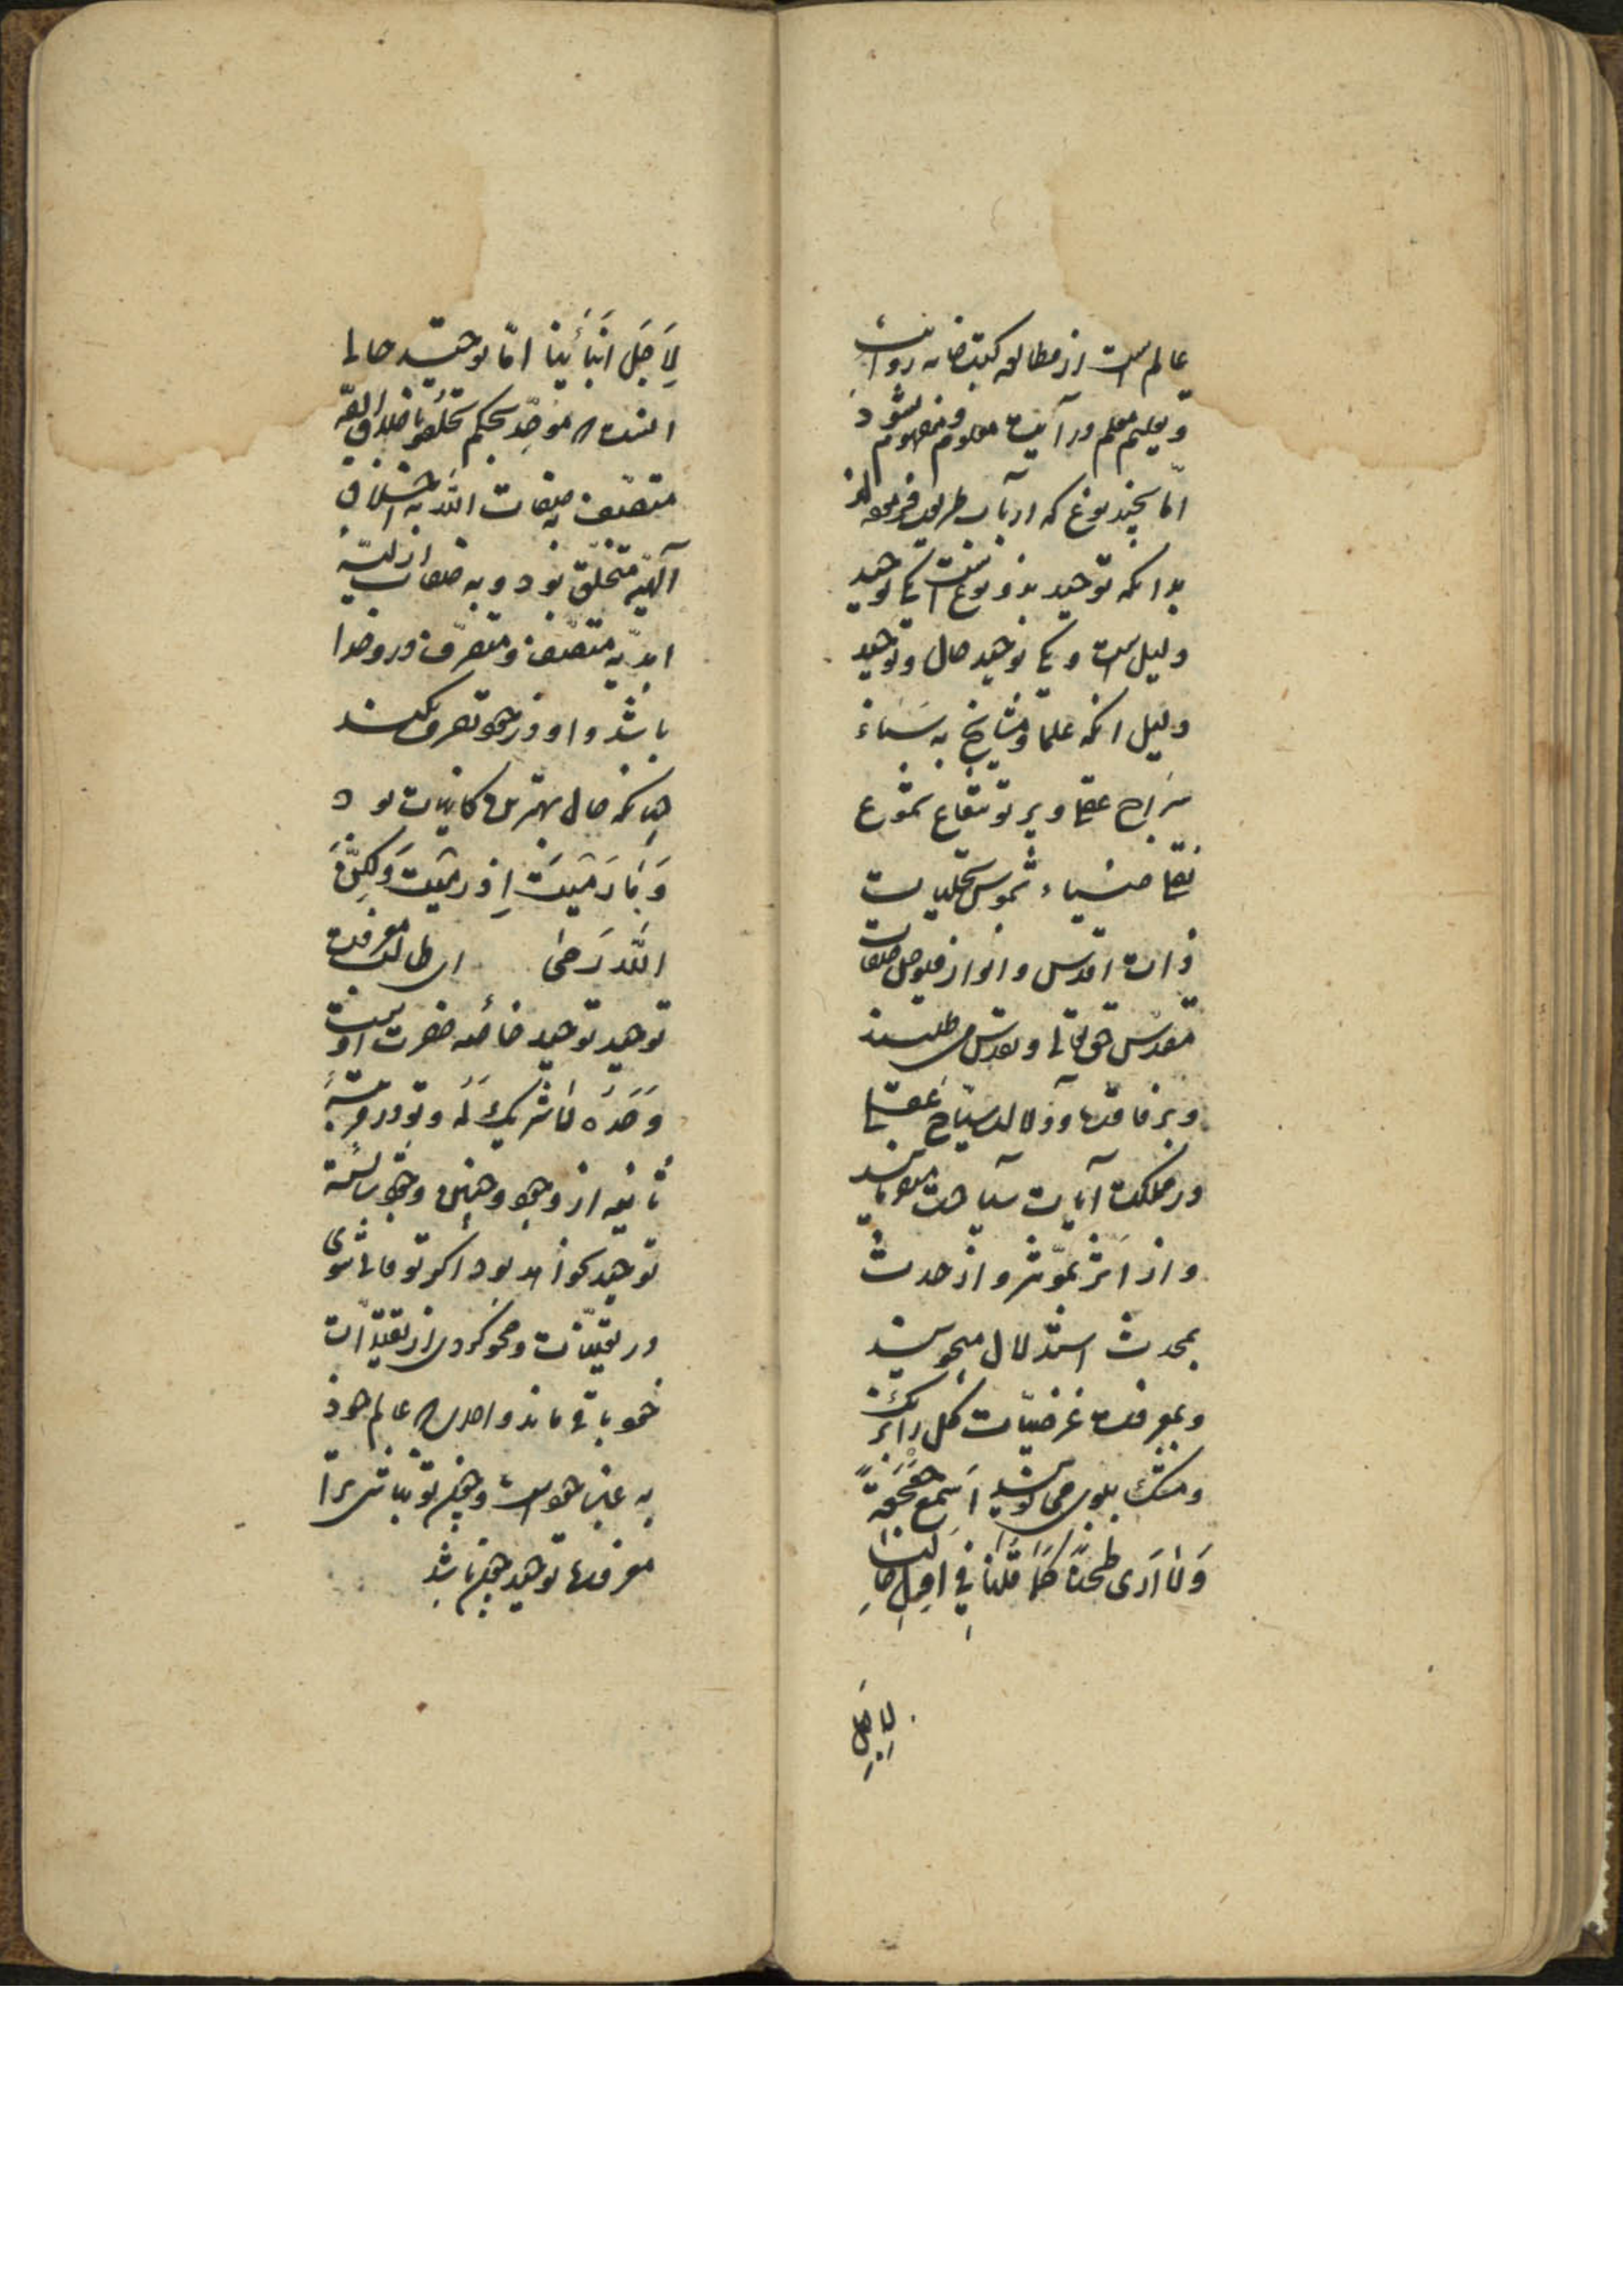 عالم است از مطالعه کتبخانه روایت
و تعلیم معلم درایت معلوم و مفهوم شود
امّا بچند نوع که ارباب طریقت فرموده‌اند
بدانکه توحید بدو نوعست یکی توحید
دلیل است و یکی توحید حال و توحید
دلیل آنکه علما و مشایخ به
سراج عقل و پرتو شعاع شموع
نقل ضیاء شموس تجلیات
ذات اقدس و انوار فیوض صفات
مقدّس حق تعالی و تقدّس می‌طلبند
و برفاقت و دلالت سیّاح عقل
در مملکت آیات سیاحت مینمایند
و از اثر بمؤثر و از حدث
بمحدث استدلال میجویند
و بمعرفت کل را
و مشک بلوی می‌بویند اسمع جعجعةً
وَلَا اَرَی طحناً کَمَا قُلنَا فِی
لِاَجَل
لِاَجَل امّا توحید حال
آنست که موحّد بحکم تخلّقوا باخلاق اللّه
متصّف بصفات اللّه به اخلاق
آلهیّه متخلّق بود و به صفات ازلیّه
ابدیّه متّصف و متصرّف درو خدا
باشد و او در خود تصرّف نکند
چنانکه حال بهترین کاینات بود
وَمَا رَمَیتَ اِذ رَمَیتَ وَلٰکِنَّ
اللّٰه رَمیٰ ای طالب معرفت
توحید توحید خاصّه حضرت اوست
وَحدَهُ لَا شَریکَ لَهُ و تو در مرتبهٔ
ثانیه از وجود
توحید نخواهد بود اکر تو فانی شوی
در تعیّنات و محو کردی از تقیّدات
خود باقی ماند واحدی که عالم خود
به عین خود است و چون تو نباشی ترا
معرفت توحید چون باشد